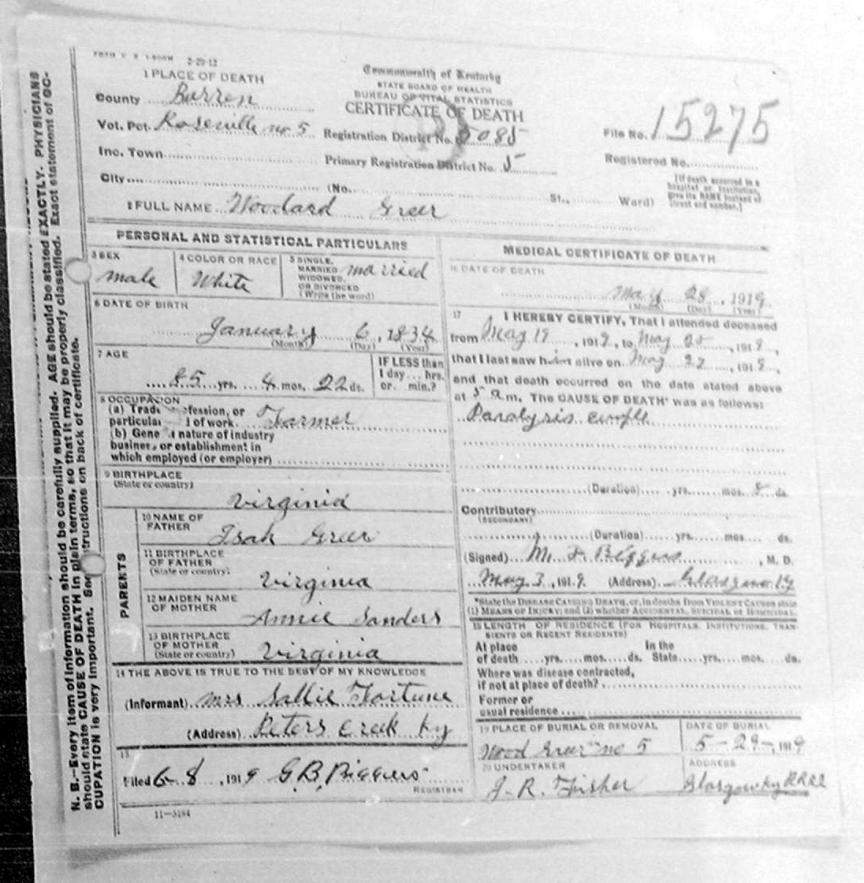 2-29-12
1 PLACE OF DEATH
County Barren
Vot. Pct. Roseville no 5
Inc. Town
City
(No. St., Ward)
Commonwealth of Kentucky
STATE BOARD OF HEALTH
BUREAU OF VITAL STATISTICS
CERTIFICATE OF DEATH
Registration District No. 5085
Primary Registration District No. 5
File No. 15275
Registered No.
[If death occurred in a
hospital or institution,
give its NAME instead of
street and number.]
2 FULL NAME Woodard Greer
PERSONAL AND STATISTICAL PARTICULARS
3 SEX
male
4 COLOR OR RACE
White
5 SINGLE,
MARRIED
WIDOWED,
OR DIVORCED
(Write the word)
married
6 DATE OF BIRTH
January 6, 1834
(Month) (Day) (Year)
7 AGE
85 yrs. 4 mos. 22 ds.
IF LESS than
1 day... hrs.
or... min.?
8 OCCUPATION
(a) Trade, profession, or
particular kind of work. Farmer
(b) General nature of industry
business, or establishment in
which employed (or employer)
9 BIRTHPLACE
(State or country)
Virginia
PARENTS
10 NAME OF
FATHER
Isah Greer
11 BIRTHPLACE
OF FATHER
(State or country)
Virginia
12 MAIDEN NAME
OF MOTHER
Annie Sanders
13 BIRTHPLACE
OF MOTHER
(State or country)
Virginia
14 THE ABOVE IS TRUE TO THE BEST OF MY KNOWLEDGE
(Informant) Mrs Sallie Fortune
(Address) Peters Creek Ky
15
Filed 6-8, 1919 G.B. Biggers
REGISTRAR
11-3184
MEDICAL CERTIFICATE OF DEATH
16 DATE OF DEATH
May 28, 1919
(Month) (Day) (Year)
17 I HEREBY CERTIFY, That I attended deceased
from May 19, 1919, to May 28, 1919,
that I last saw him alive on May 27, 1919,
and that death occurred on the date stated above
at 5 am. The CAUSE OF DEATH* was as follows:
Paralysis
(Duration) yrs. mos. 8 ds.
Contributory
(SECONDARY)
(Duration) yrs. mos. ds.
(Signed) Biggers, M. D.
May 3, 1919. (Address) Glasgow Ky
*State the DISEASE CAUSING DEATH, or, in deaths from VIOLENT CAUSES state
(1) MEANS OF INJURY; and (2) whether ACCIDENTAL, SUICIDAL or HOMICIDAL.
18 LENGTH OF RESIDENCE (FOR HOSPITALS, INSTITUTIONS, TRAN-
SIENTS OR RECENT RESIDENTS)
At place In the
of death yrs. mos. ds. State yrs. mos. ds.
Where was disease contracted,
if not at place of death?
Former or
usual residence
19 PLACE OF BURIAL OR REMOVAL
Wood Greer no 5
DATE OF BURIAL
5-29-1919
20 UNDERTAKER
J. R. Fisher
ADDRESS
Glasgow Ky RR
N. B.—Every item of information should be carefully supplied. AGE should be stated EXACTLY. PHYSICIANS
should state CAUSE OF DEATH in plain terms, so that it may be properly classified. Exact statement of OC-
CUPATION is very important. See instructions on back of certificate.